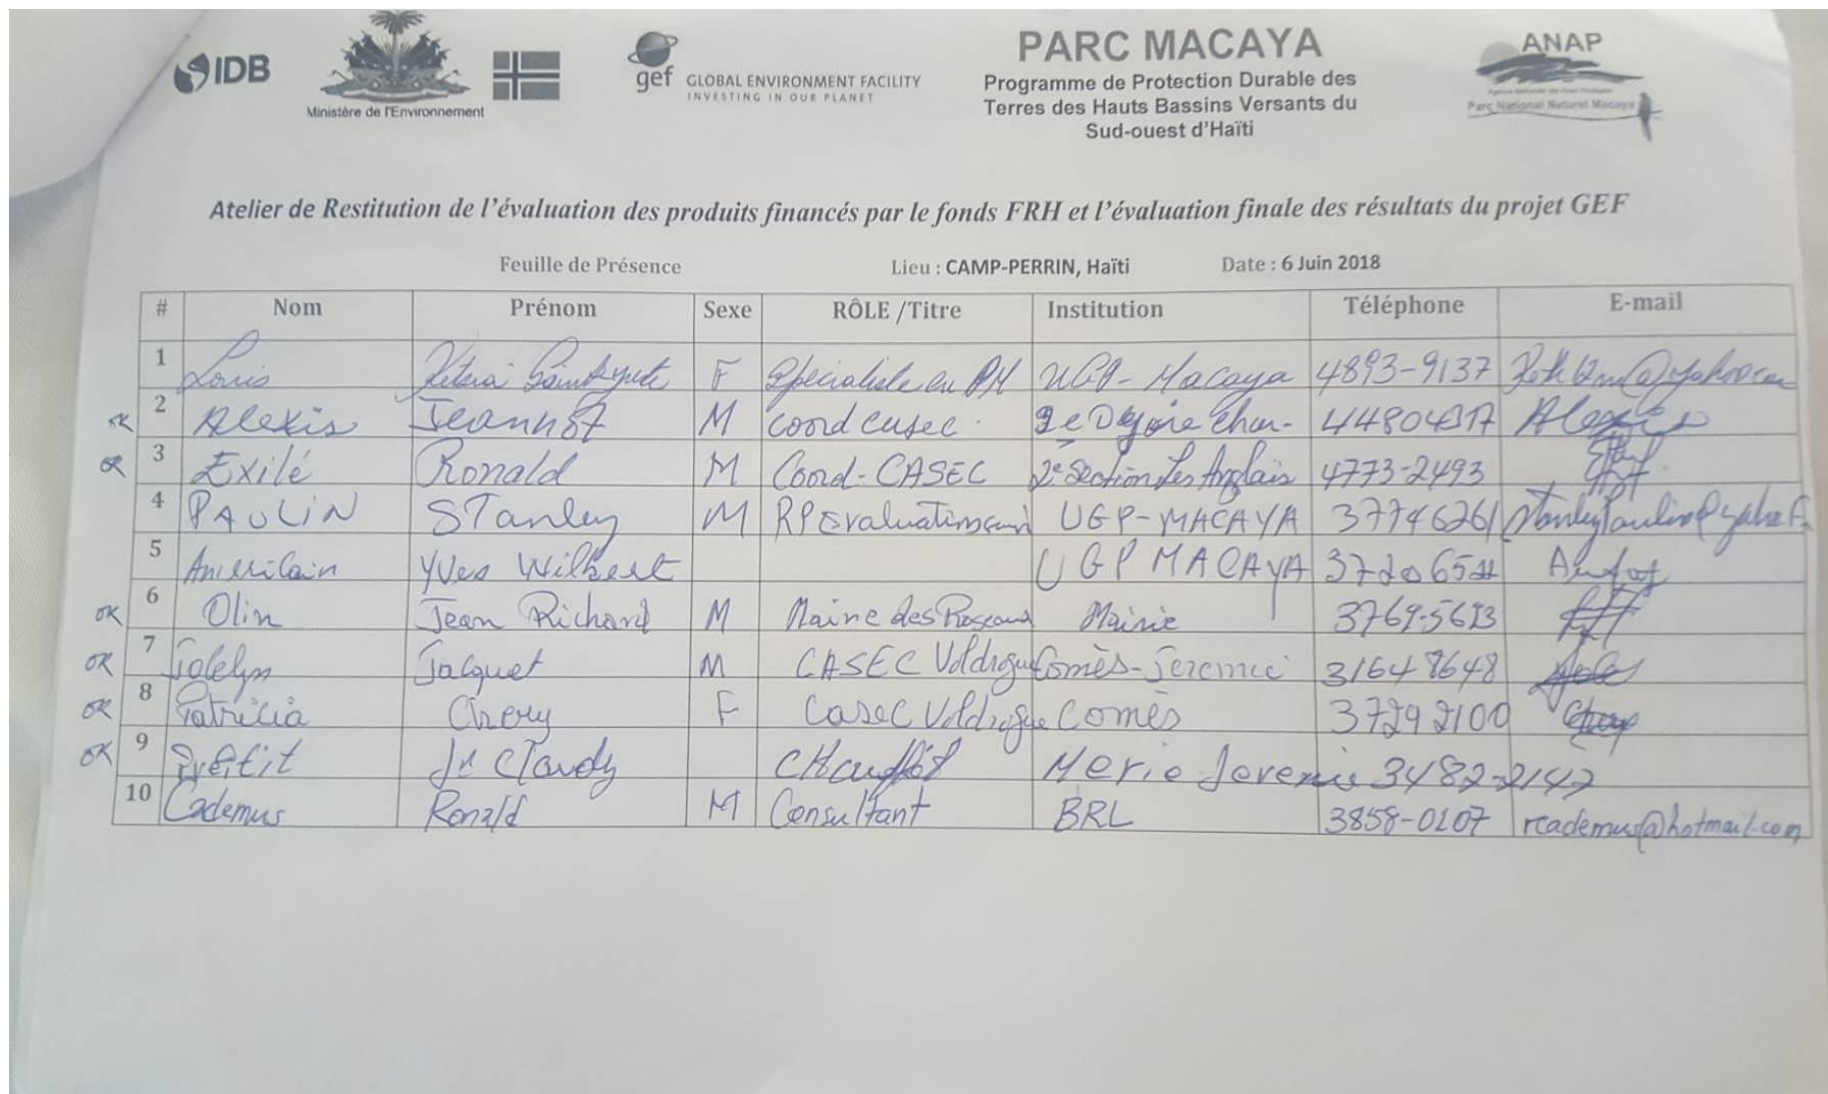 IDB
Ministère de l'Environnement
gef GLOBAL ENVIRONMENT FACILITY
INVESTING IN OUR PLANET
PARC MACAYA
Programme de Protection Durable des
Terres des Hauts Bassins Versants du
Sud-ouest d'Haïti
ANAP
Parc National Naturel Macaya
Atelier de Restitution de l'évaluation des produits financés par le fonds FRH et l'évaluation finale des résultats du projet GEF
Feuille de Présence Lieu : CAMP-PERRIN, Haïti Date : 6 Juin 2018
# Nom Prénom Sexe RÔLE /Titre Institution Téléphone E-mail
1 Louis F Spécialiste en PM UGP-Macaya 4893-9137
OK 2 Alexis Jeannot M Coord casec 44804317 Alexis
OK 3 Exilé Ronald M Coord-CASEC 2e Section Les Anglais 4773-2493
4 PAULIN STanley M RP Evaluation UGP-MACAYA 37746261
5 Yves Wilbert UGP MACAYA
OK 6 Olin Jean Richard M Maire des Roseaux Mairie 3769-5613
OK 7 Jocelyn Jacquet M CASEC Voldrogue Comès-Jeremie 31648648
OK 8 Patricia Chery F Casec Voldrogue Comès 37292100
OK 9 Petit Jn Claudy Merie Jeremie 3482-2147
10 Cademus Ronald M Consultant BRL 3858-0107 rcademus@hotmail.com